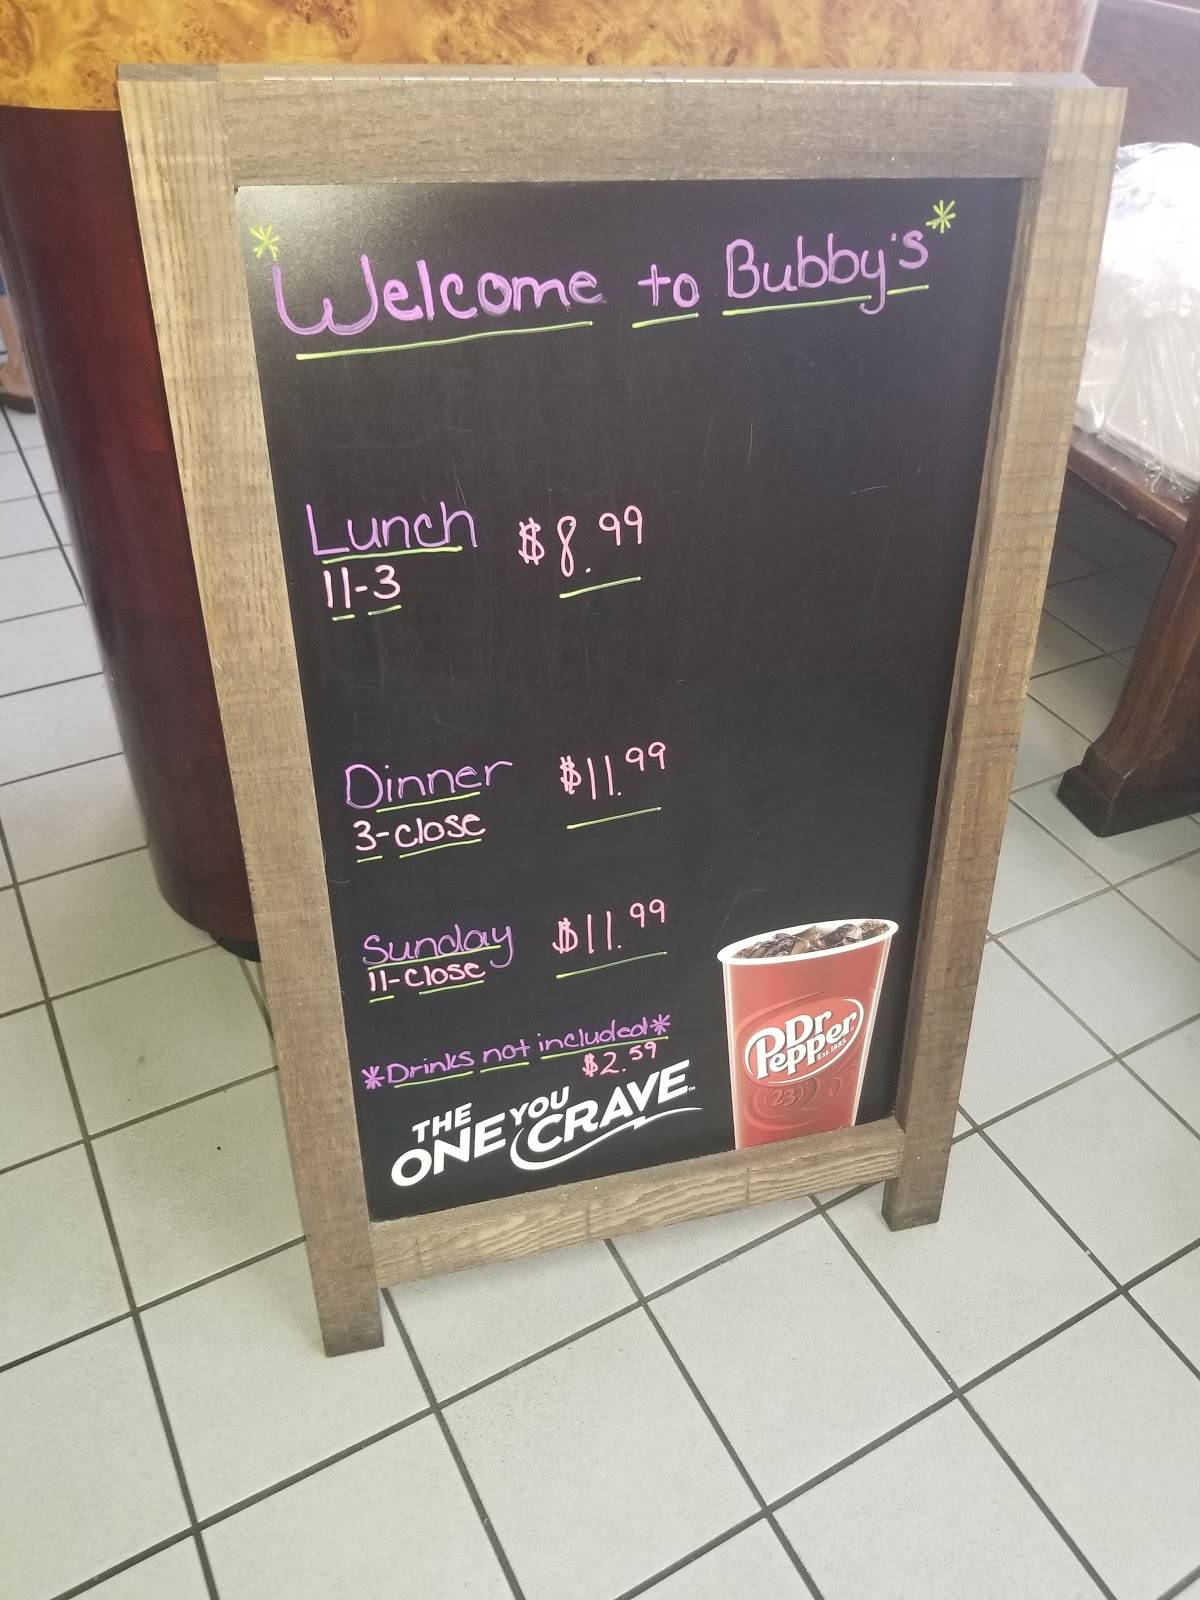 *Welcome to Bubby's*
Lunch $8.99
11-3
Dinner $11.99
3-close
Sunday $11.99
11-close
*Drinks not included*
$2.59
THE ONE YOU CRAVE™
Dr Pepper
EST. 1885
23